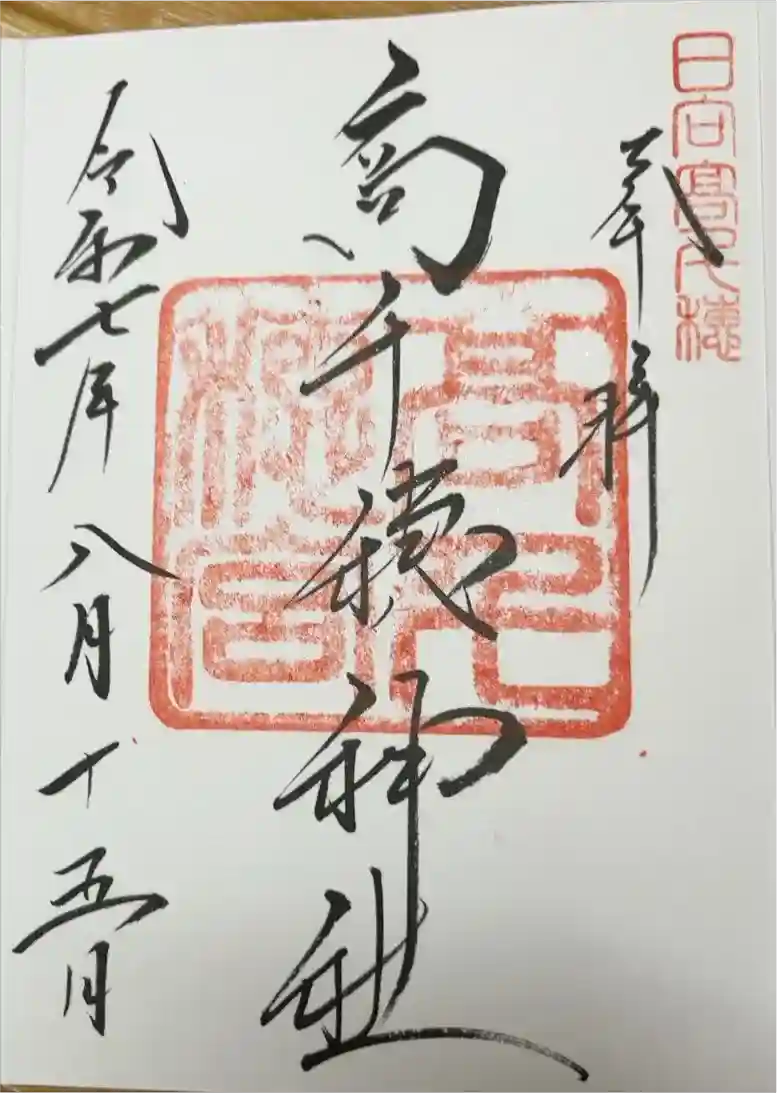 日向高千穂
奉拝
高千穂神社
高千穂宮
令和七年八月十五日